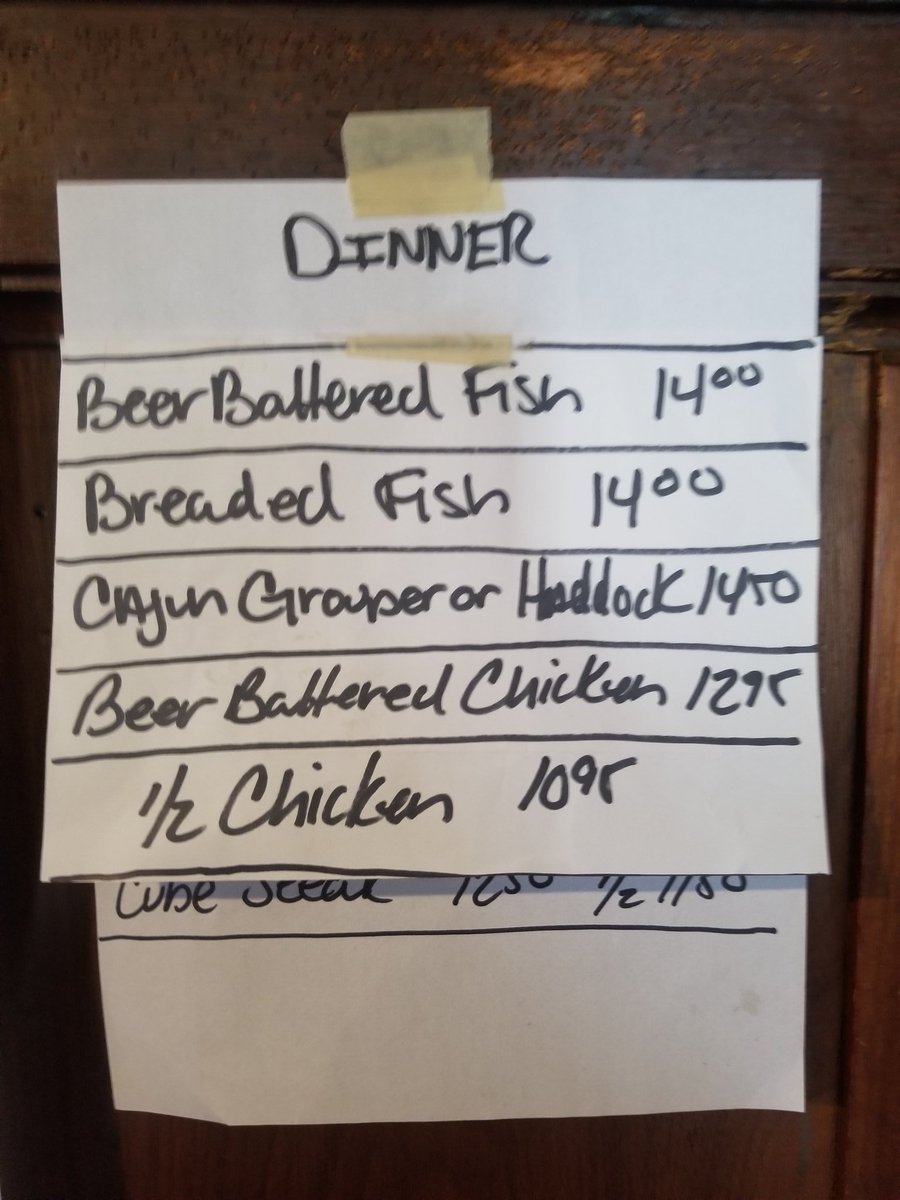 DINNER
Beer Battered Fish 14⁰⁰
Breaded Fish 14⁰⁰
Cajun Grouper or Haddock 14⁵⁰
Beer Battered Chicken 12⁹⁵
1/2 Chicken 10⁹⁵
Cube Steak 12⁵⁰ 1/2 11⁵⁰